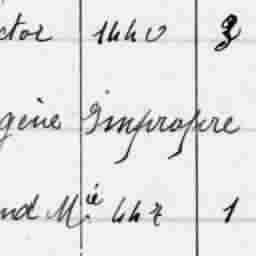 ctor 1440 3
gène Impropre
nd Mié 447 1